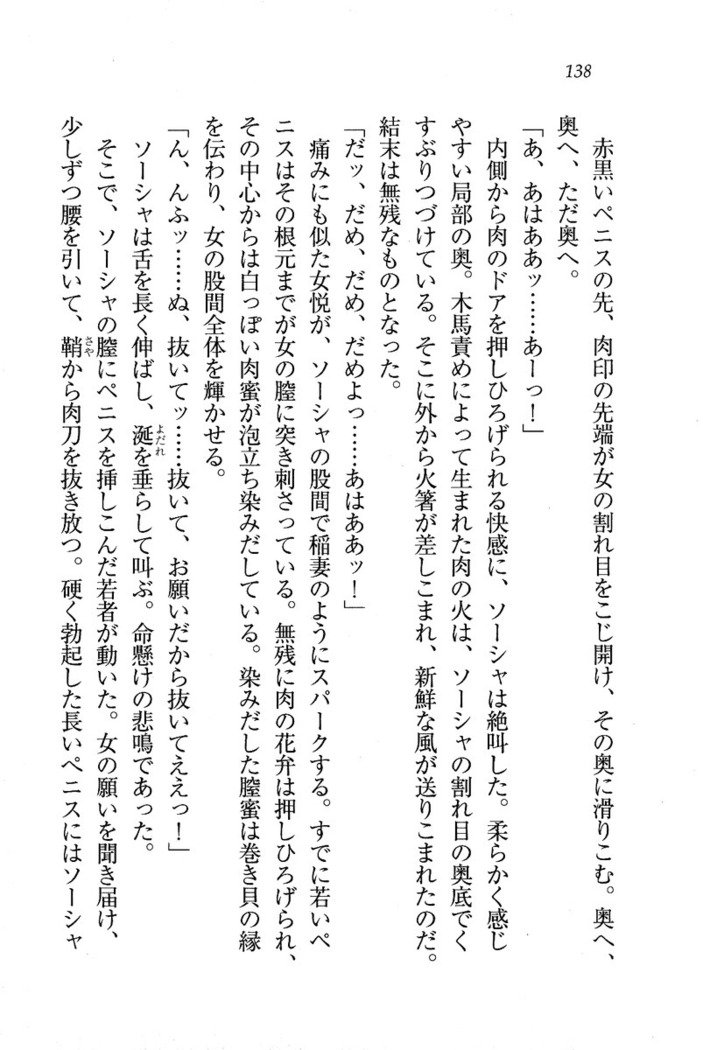 138
赤黒いペニスの先、肉印の先端が女の割れ目をこじ開け、その奥に滑りこむ。奥へ、
奥へ、ただ奥へ。
「あ、あはああッ……あーっ！」
内側から肉のドアを押しひろげられる快感に、ソーシャは絶叫した。柔らかく感じ
やすい局部の奥。木馬責めによって生まれた肉の火は、ソーシャの割れ目の奥底でく
すぶりつづけている。そこに外から火箸が差しこまれ、新鮮な風が送りこまれたのだ。
結末は無残なものとなった。
「だッ、だめ、だめ、だめよっ……あはああッ！」
痛みにも似た女悦が、ソーシャの股間で稲妻のようにスパークする。すでに若いペ
ニスはその根元までが女の膣に突き刺さっている。無残に肉の花弁は押しひろげられ、
その中心からは白っぽい肉蜜が泡立ち染みだしている。染みだした膣蜜は巻き貝の縁
を伝わり、女の股間全体を輝かせる。
「ん、んふッ……ぬ、抜いてッ……抜いて、お願いだから抜いてええっ！」
ソーシャは舌を長く伸ばし、涎よだれを垂らして叫ぶ。命懸けの悲鳴であった。
そこで、ソーシャの膣にペニスを挿しこんだ若者が動いた。女の願いを聞き届け、
少しずつ腰を引いて、鞘さやから肉刀を抜き放つ。硬く勃起した長いペニスにはソーシャ